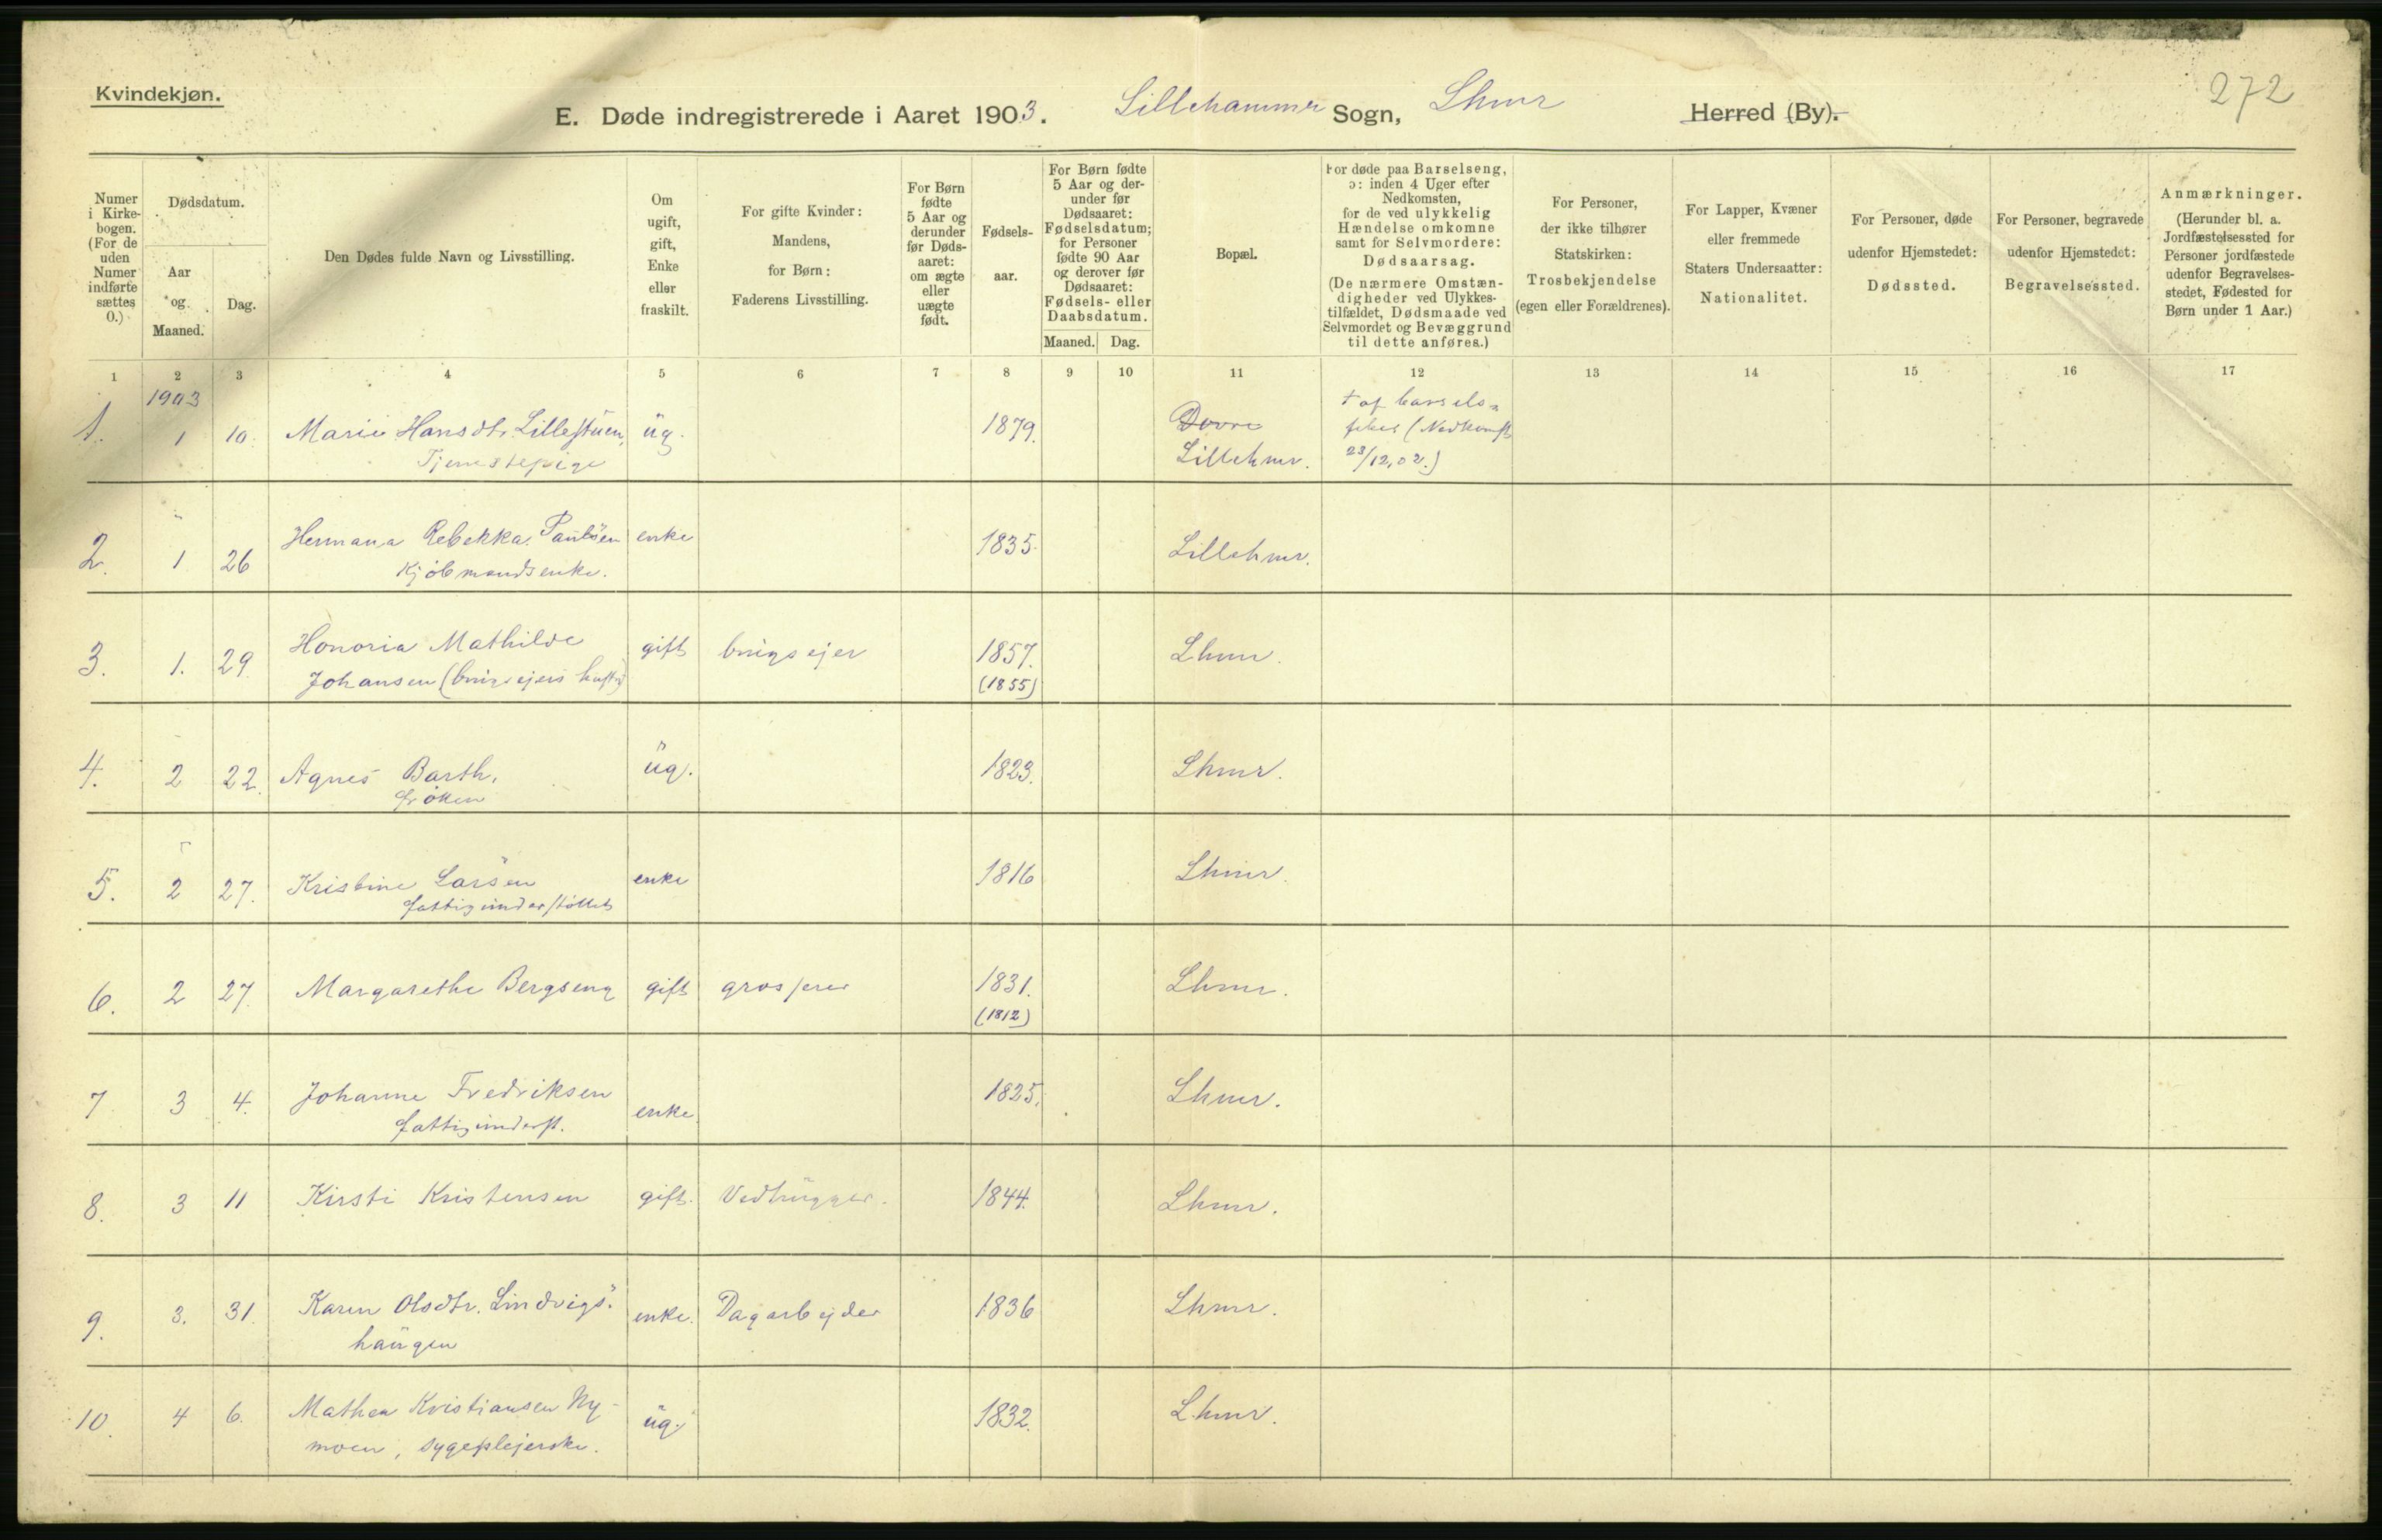 Kvindekjøn.
E. Døde indregistrerede i Aaret 1903. Lillehammer Sogn, Lhmr Herred (By).
272
Numer i Kirkebogen. (For de uden Numer indførte sættes 0.)
Dødsdatum.
Aar og Maaned.
Dag.
Den Dødes fulde Navn og Livsstilling.
Om ugift, gift, Enke eller fraskilt.
For gifte Kvinder: Mandens, for Børn: Faderens Livsstilling.
For Børn fødte 5 Aar og derunder før Dødsaaret: om ægte eller uægte født.
Fødsels-aar.
For Børn fødte 5 Aar og derunder før Dødsaaret: Fødselsdatum; for Personer fødte 90 Aar og derover før Dødsaaret: Fødsels- eller Daabsdatum.
Maaned. Dag.
Bopæl.
For døde paa Barselseng, ɔ: inden 4 Uger efter Nedkomsten, for de ved ulykkelig Hændelse omkomne samt for Selvmordere: Dødsaarsag.
(De nærmere Omstændigheder ved Ulykkestilfældet, Dødsmaade ved Selvmordet og Bevæggrund til dette anføres.)
For Personer, der ikke tilhører Statskirken: Trosbekjendelse (egen eller Forældrenes).
For Lapper, Kvæner eller fremmede Staters Undersaatter: Nationalitet.
For Personer, døde udenfor Hjemstedet: Dødssted.
For Personer, begravede udenfor Hjemstedet: Begravelsessted.
Anmærkninger. (Herunder bl. a. Jordfæstelsessted for Personer jordfæstede udenfor Begravelsesstedet, Fødested for Børn under 1 Aar.)
1 2 3 4 5 6 7 8 9 10 11 12 13 14 15 16 17
1903
1. 1 10. Marie Hansdtr. Lillestuen, ug. 1879. Dovre † af barsels-
Tjenestepige Lillehmr. feber (Nedkomst 23/12,02.)
2. 1 26 Hermana Rebekka Paulsen enke 1835. Lillehmr.
Kjøbmandsenke.
3. 1. 29. Honoria Mathilde gift brugsejer 1857. Lhmr.
Johansen (brugsejers hustru) (1855)
4. 2 22. Agnes Barth, ug. 1823. Lhmr.
frøken
5. 2 27. Kristine Larsen enke 1816 Lhmr.
fattigunderstøttet
6. 2 27. Margarethe Bergseng gift grosserer 1831. Lhmr.
(1812)
7 3 4. Johanne Fredriksen enke 1825. Lhmr.
fattigunderst.
8. 3 11 Kirsti Kristensen gift. Vedhugger. 1844. Lhmr.
9. 3. 31. Karen Olsdtr. Lindvigs- enke. Dagarbejder 1836 Lhmr.
haugen
10. 4 6. Mathea Kristiansen Ny- ug. 1832. Lhmr.
moen, sygeplejerske.